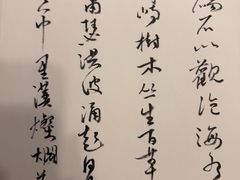 碣石以觀沧海水
峙樹木丛生百草
蕭瑟洪波涌起日
其中星漢燦爛